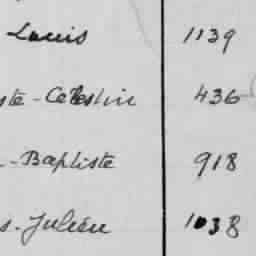 Louis 1139
ste-Célestin 436
-Baptiste 918
s-Julien 1038